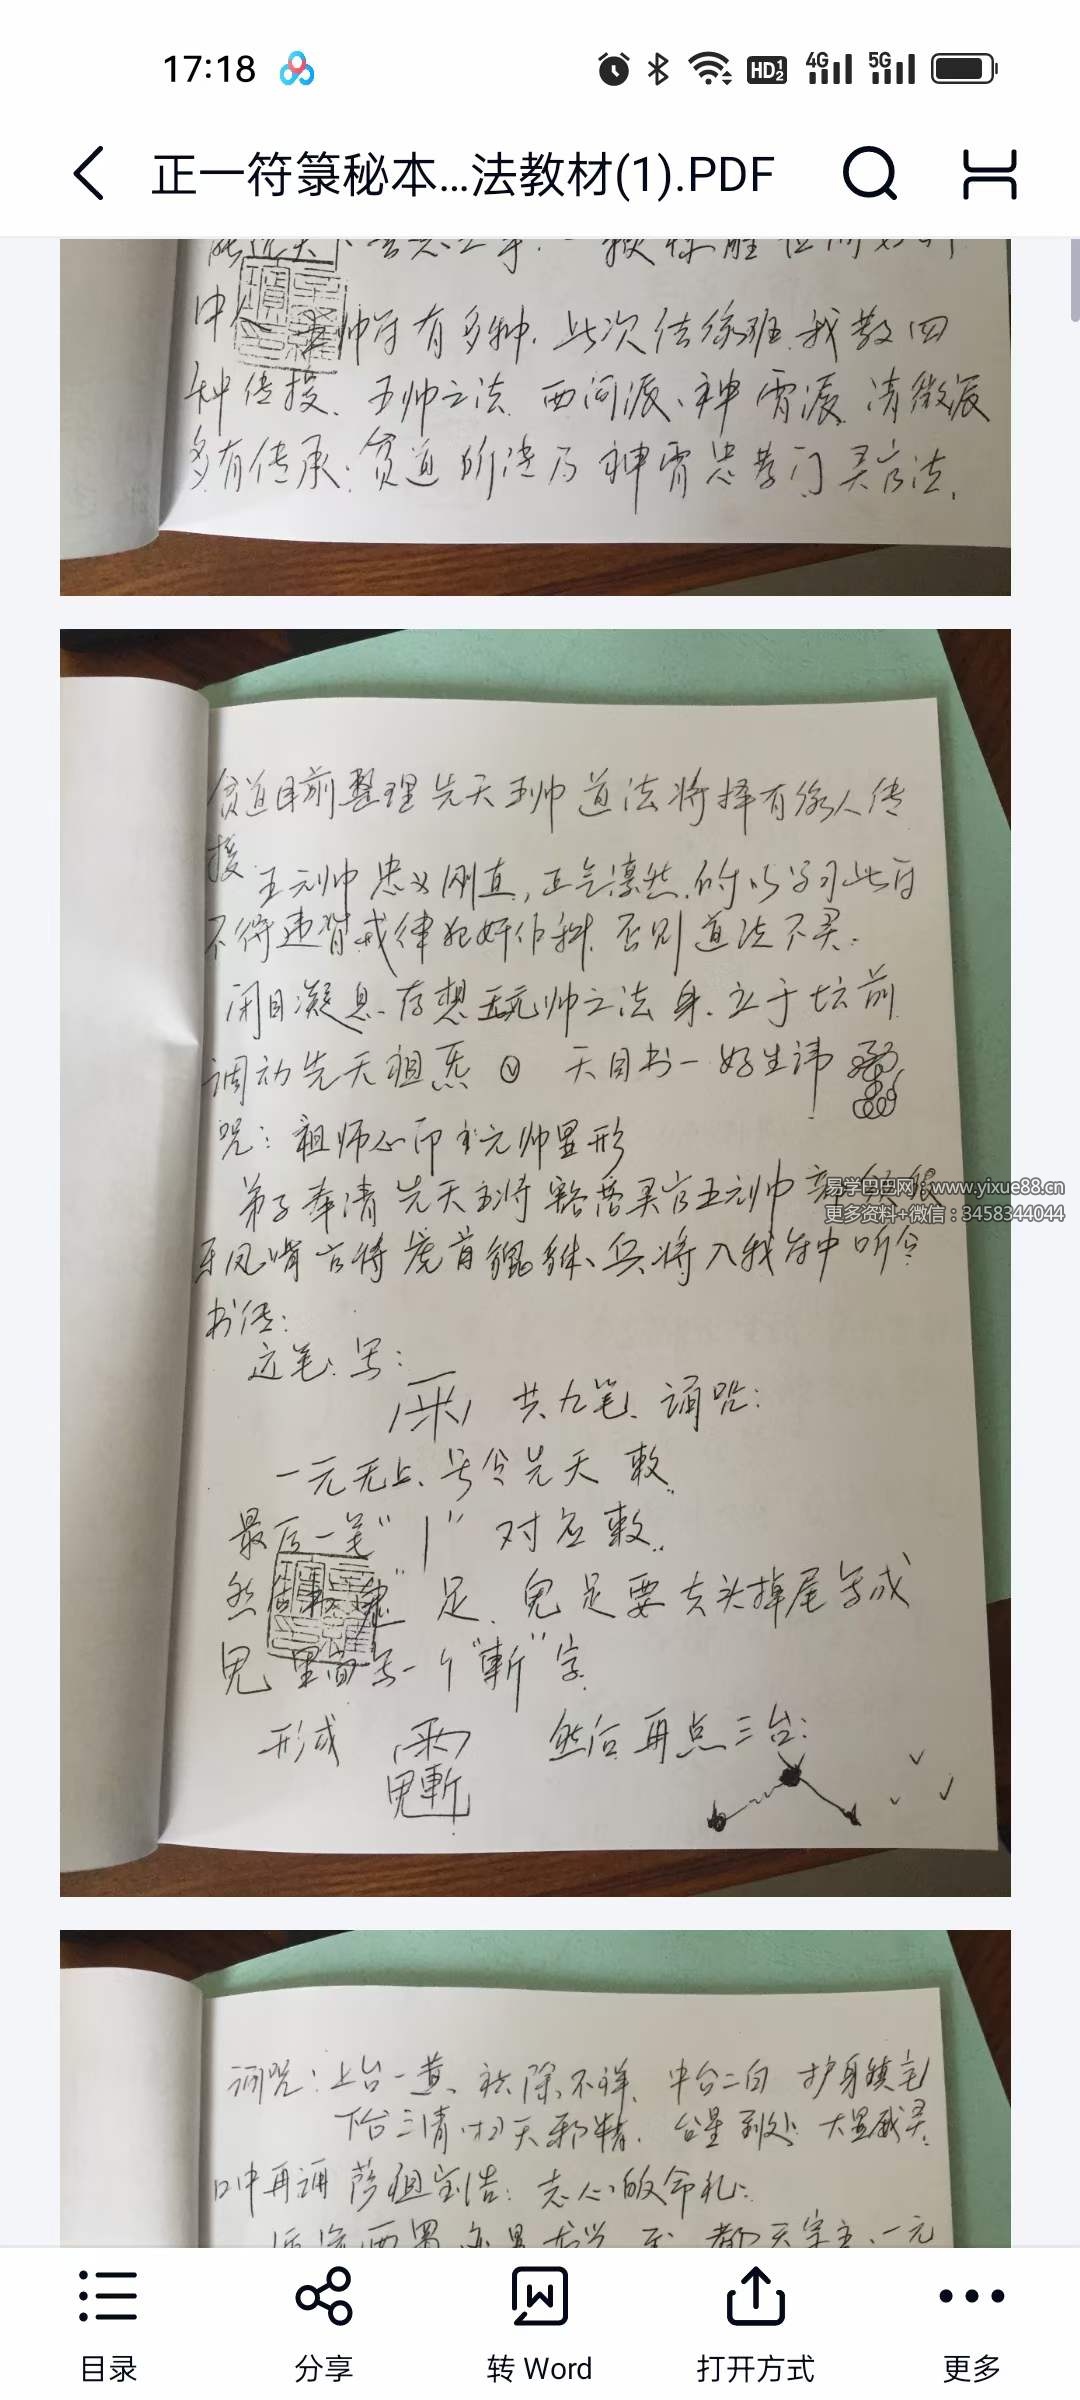 17:18
HD 1 2 4G 5G
正一符箓秘本...法教材(1).PDF
王帅符有多种.此次传缘班.我教四
种传授、王帅之法.西河派、神霄派.清微派
多有传承.贫道所学乃神霄忠孝门灵官法.
贫道目前整理先天王帅道法将择有缘人传
授.王元帅忠义刚直,正气凛然.所以学习此符
不得违背戒律犯奸作科.否则道法不灵.
闭目凝息.存想王元帅之法身.立于坛前
调动先天祖炁 天目书一好生讳
咒:祖师心印王元帅显形
弟子奉请先天主将豁落灵官王元帅部领银
牙凤嘴 将虎首貔貅、兵将入我符中听令
易学巴巴网:www.yixue88.cn
更多资料+微信:3458344044
书传:
运笔、写:
共九笔、诵咒:
一元无上、号令先天 敕
最后一笔"丨" 对应敕.
足.鬼足要去头掉尾写成
里面写一个"斬"字
形成 然后再点三台:
诵咒:上台一黄、祛除不祥.中台二白 护身镇宅
下台三清.扫灭邪精.台星到处.大显威灵.
口中再诵萨祖宝诰:志心皈命礼:
目录
分享
转 Word
打开方式
更多